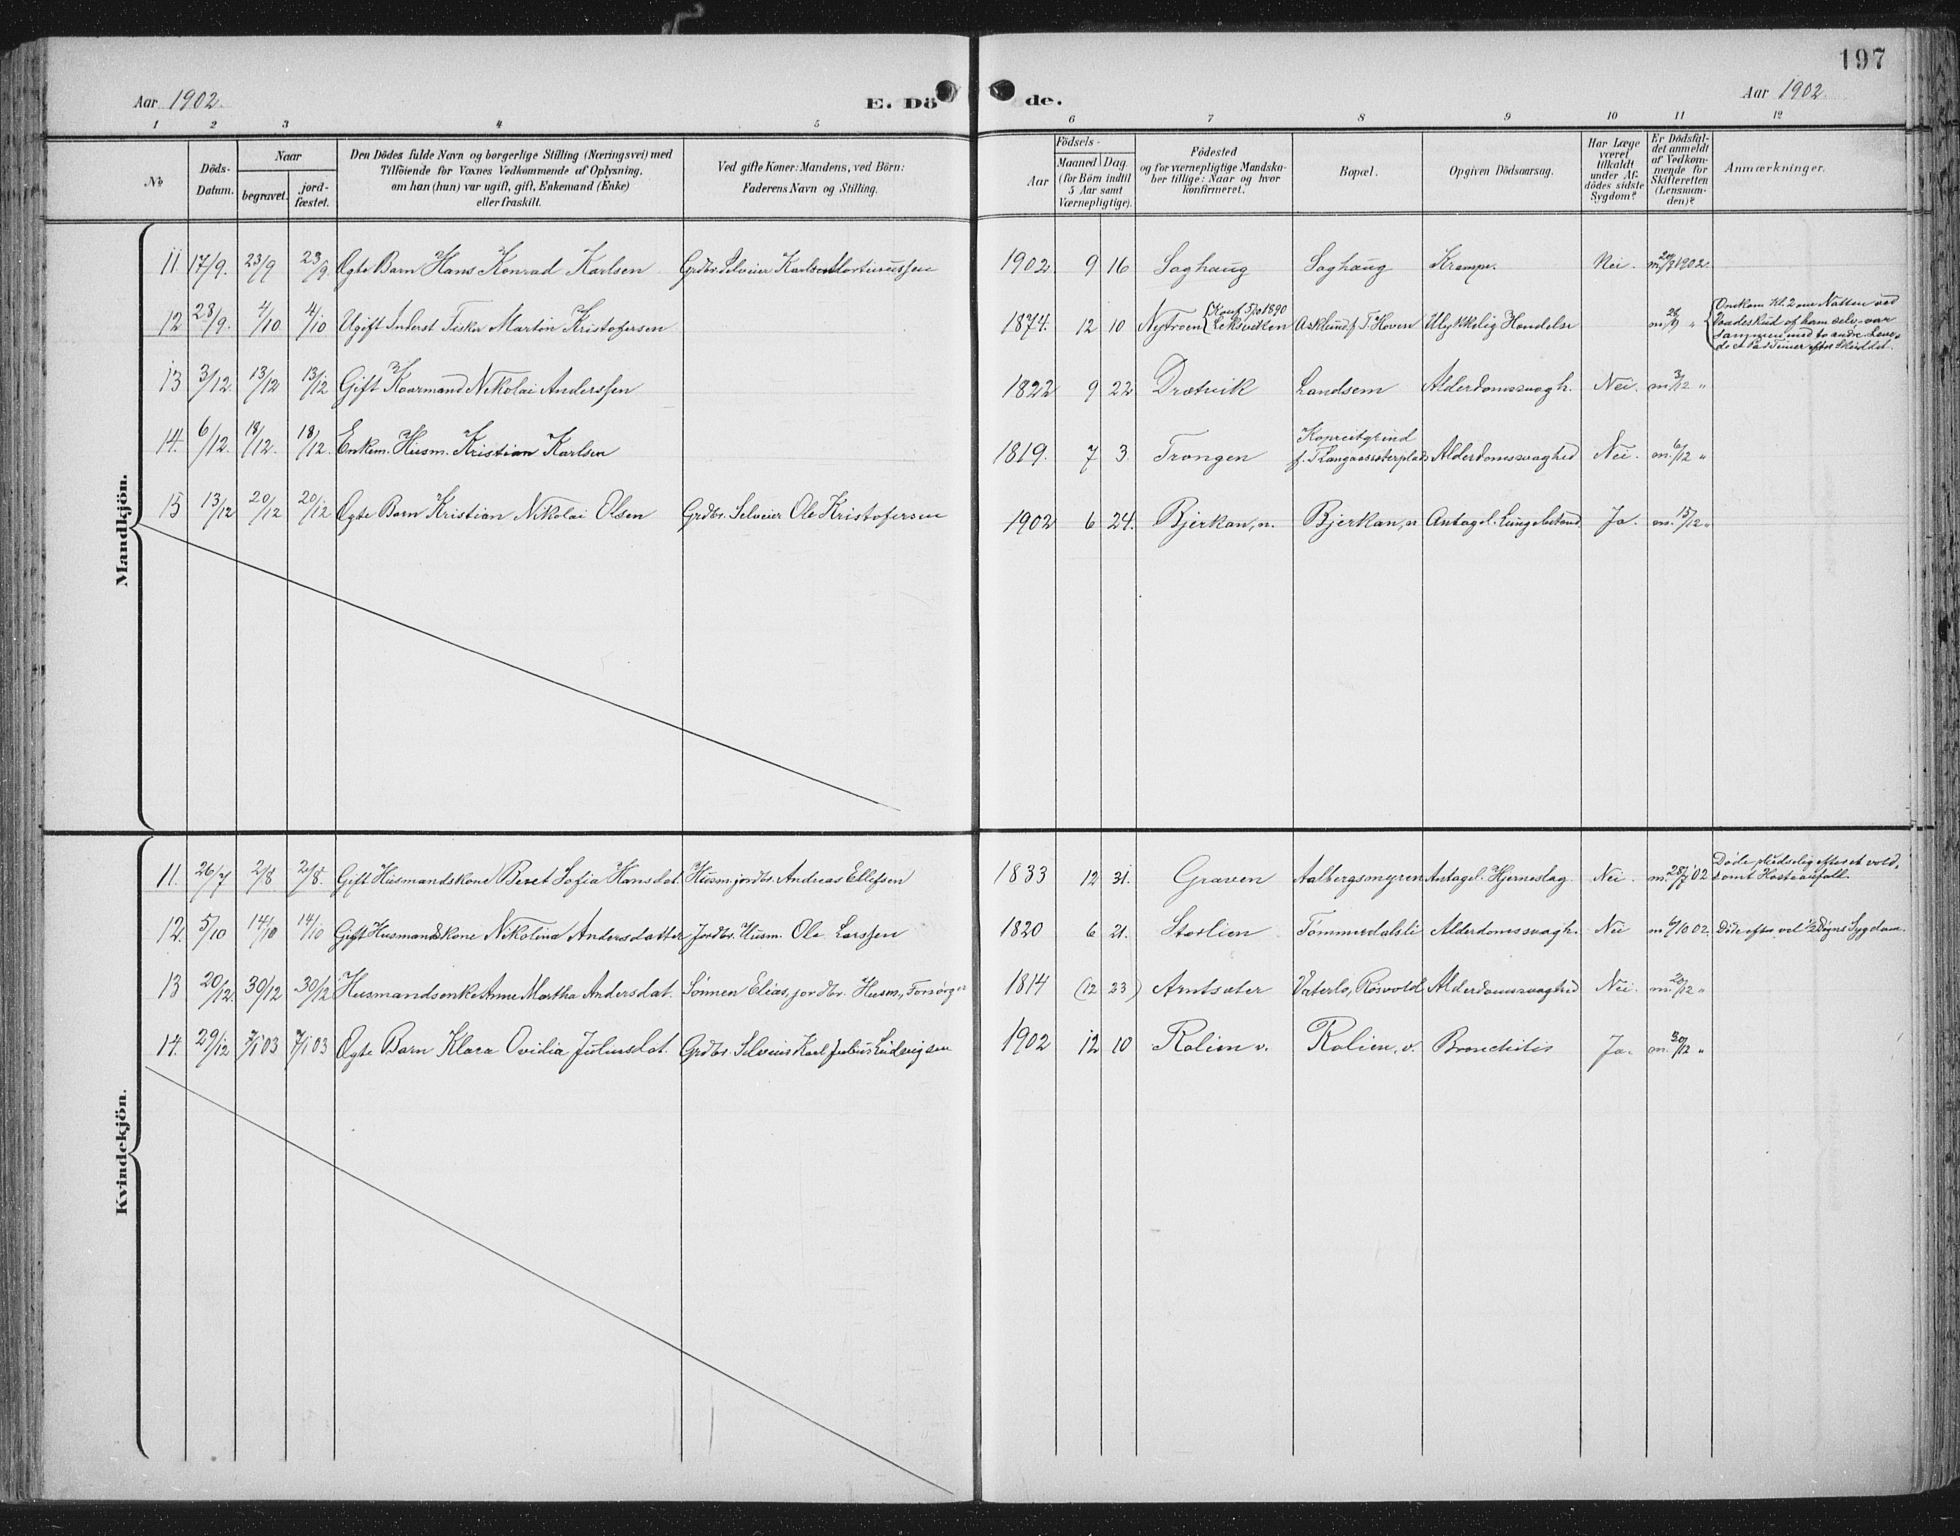 197
Aar 1902.
E. Dö de.
Aar 1902.
1 2 3 4 5 6 7 8 9 10 11 12
No
Döds-
Datum.
Naar
begravet.
jord-
fæstet.
Den Dödes fulde Navn og borgerlige Stilling (Næringsvei) med
Tilföiende for Voxnes Vedkommende af Oplysning,
om han (hun) var ugift, gift, Enkemand (Enke)
eller fraskilt.
Ved gifte Koner: Mandens, ved Börn:
Faderens Navn og Stilling.
Födsels-
Aar
Maaned Dag
(for Börn indtil
5 Aar samt
Værnepligtige).
Födested
og for værnepligtige Mandska-
ber tillige: Naar og hvor
konfirmeret.
Bopæl.
Opgiven Dödsaarsag.
Har Læge
været
tilkaldt
under Af-
dödes sidste
Sygdom?
Er Dödsfal-
det anmeldt
af Vedkom-
mende for
Skifteretten
(Lensman-
den)?
Anmærkninger.
Mandkjön.
11 17/9. 23/9 23/9 Ægte Barn Hans Konrad Karlsen Grdbr. Selveier Karl 1902 9 16 Saghaug Saghaug Krampe. Nei. m. 20/9 1902
12 28/9. 4/10 4/10 Ugift Inderst Fisker Martin Kristofersen 1874. 12 10 Nytrøen {Konf. 5/10 1890 Leksviken Asklund f. T. Hoven Ulykkelig Hændelse "
{Omkom Kl. 2 om Natten ved
Vaadeskud af ham selv, var
sammen med to andre. Leve-
de et Par Timer efter Skuddet.
13 3/12 13/12 13/12 Gift Kaarmand Nikolai Anderssen 1822 9 22 Drætvik Landsem Alderdomssvagh. Nei. m. 3/12 "
14. 6/12. 18/12. 18/12. Enkem. Husm. Kristian Karlsen 1819. 7 3 Trongen Alderdomssvaghed Nei. m. 6/12 "
15 13/12 20/12 20/12 Ægte Barn Kristian Nikolai Olsen Grdbr. Selveier Ole Kristofersen 1902 6 24. Bjerkan, n. Bjerkan, n Antagel. Lungebetænd Ja. m. 15/12 "
Kvindekjön.
11. 26/7 2/8 2/8. Gift Husmandskone Beret Sofia Hansdat. Husm. jordbr. Andreas Ellefsen 1833 12 31. Graven Aalbergsmyren Antagel. Hjerneslag Nei m. 28/7 02
Døde pludselig efter et vold-
somt Hosteanfall.
12. 5/10 14/10 14/10 Gift Husmandskone Nikolina Andersdatter Jordbr. Husm. Ole Larssen 1820 6 21. Storlien Tømmerdahsli Alderdomssvagh. Nei m 6/10 02. Døde efter vel 1/2 Døgns Sygdom.
13 20/12. 30/12 30/12 Husmandsenke Anne Martha Andersdat. Sønnen Elias, jordbr. Husm., Forsørger 1814 (12 23) Arntsæter Vaterlo, Røsvold Alderdomssvaghed Nei. m. 20/12 "
14. 29/12 7/1 03 7/1 03 Ægte Barn Klara Ovidia Juliusdat. Grdbr. Selveier Karl Julius Ludvigsen 1902 12 10 Rolien v. Rolien, v. Bronchitis Ja. m. 30/12 "